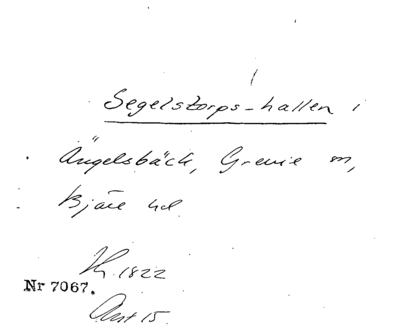 Segelstorps-hallen i
Ängelsbäck, Grevie sn,
Bjäre hd
Kh. 1822
Nr 7067.
Ant 15